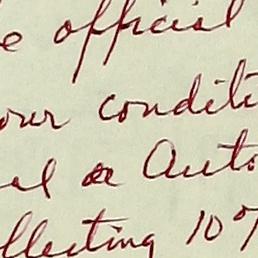 e official
our conditi
el or Auto
llecting 10%